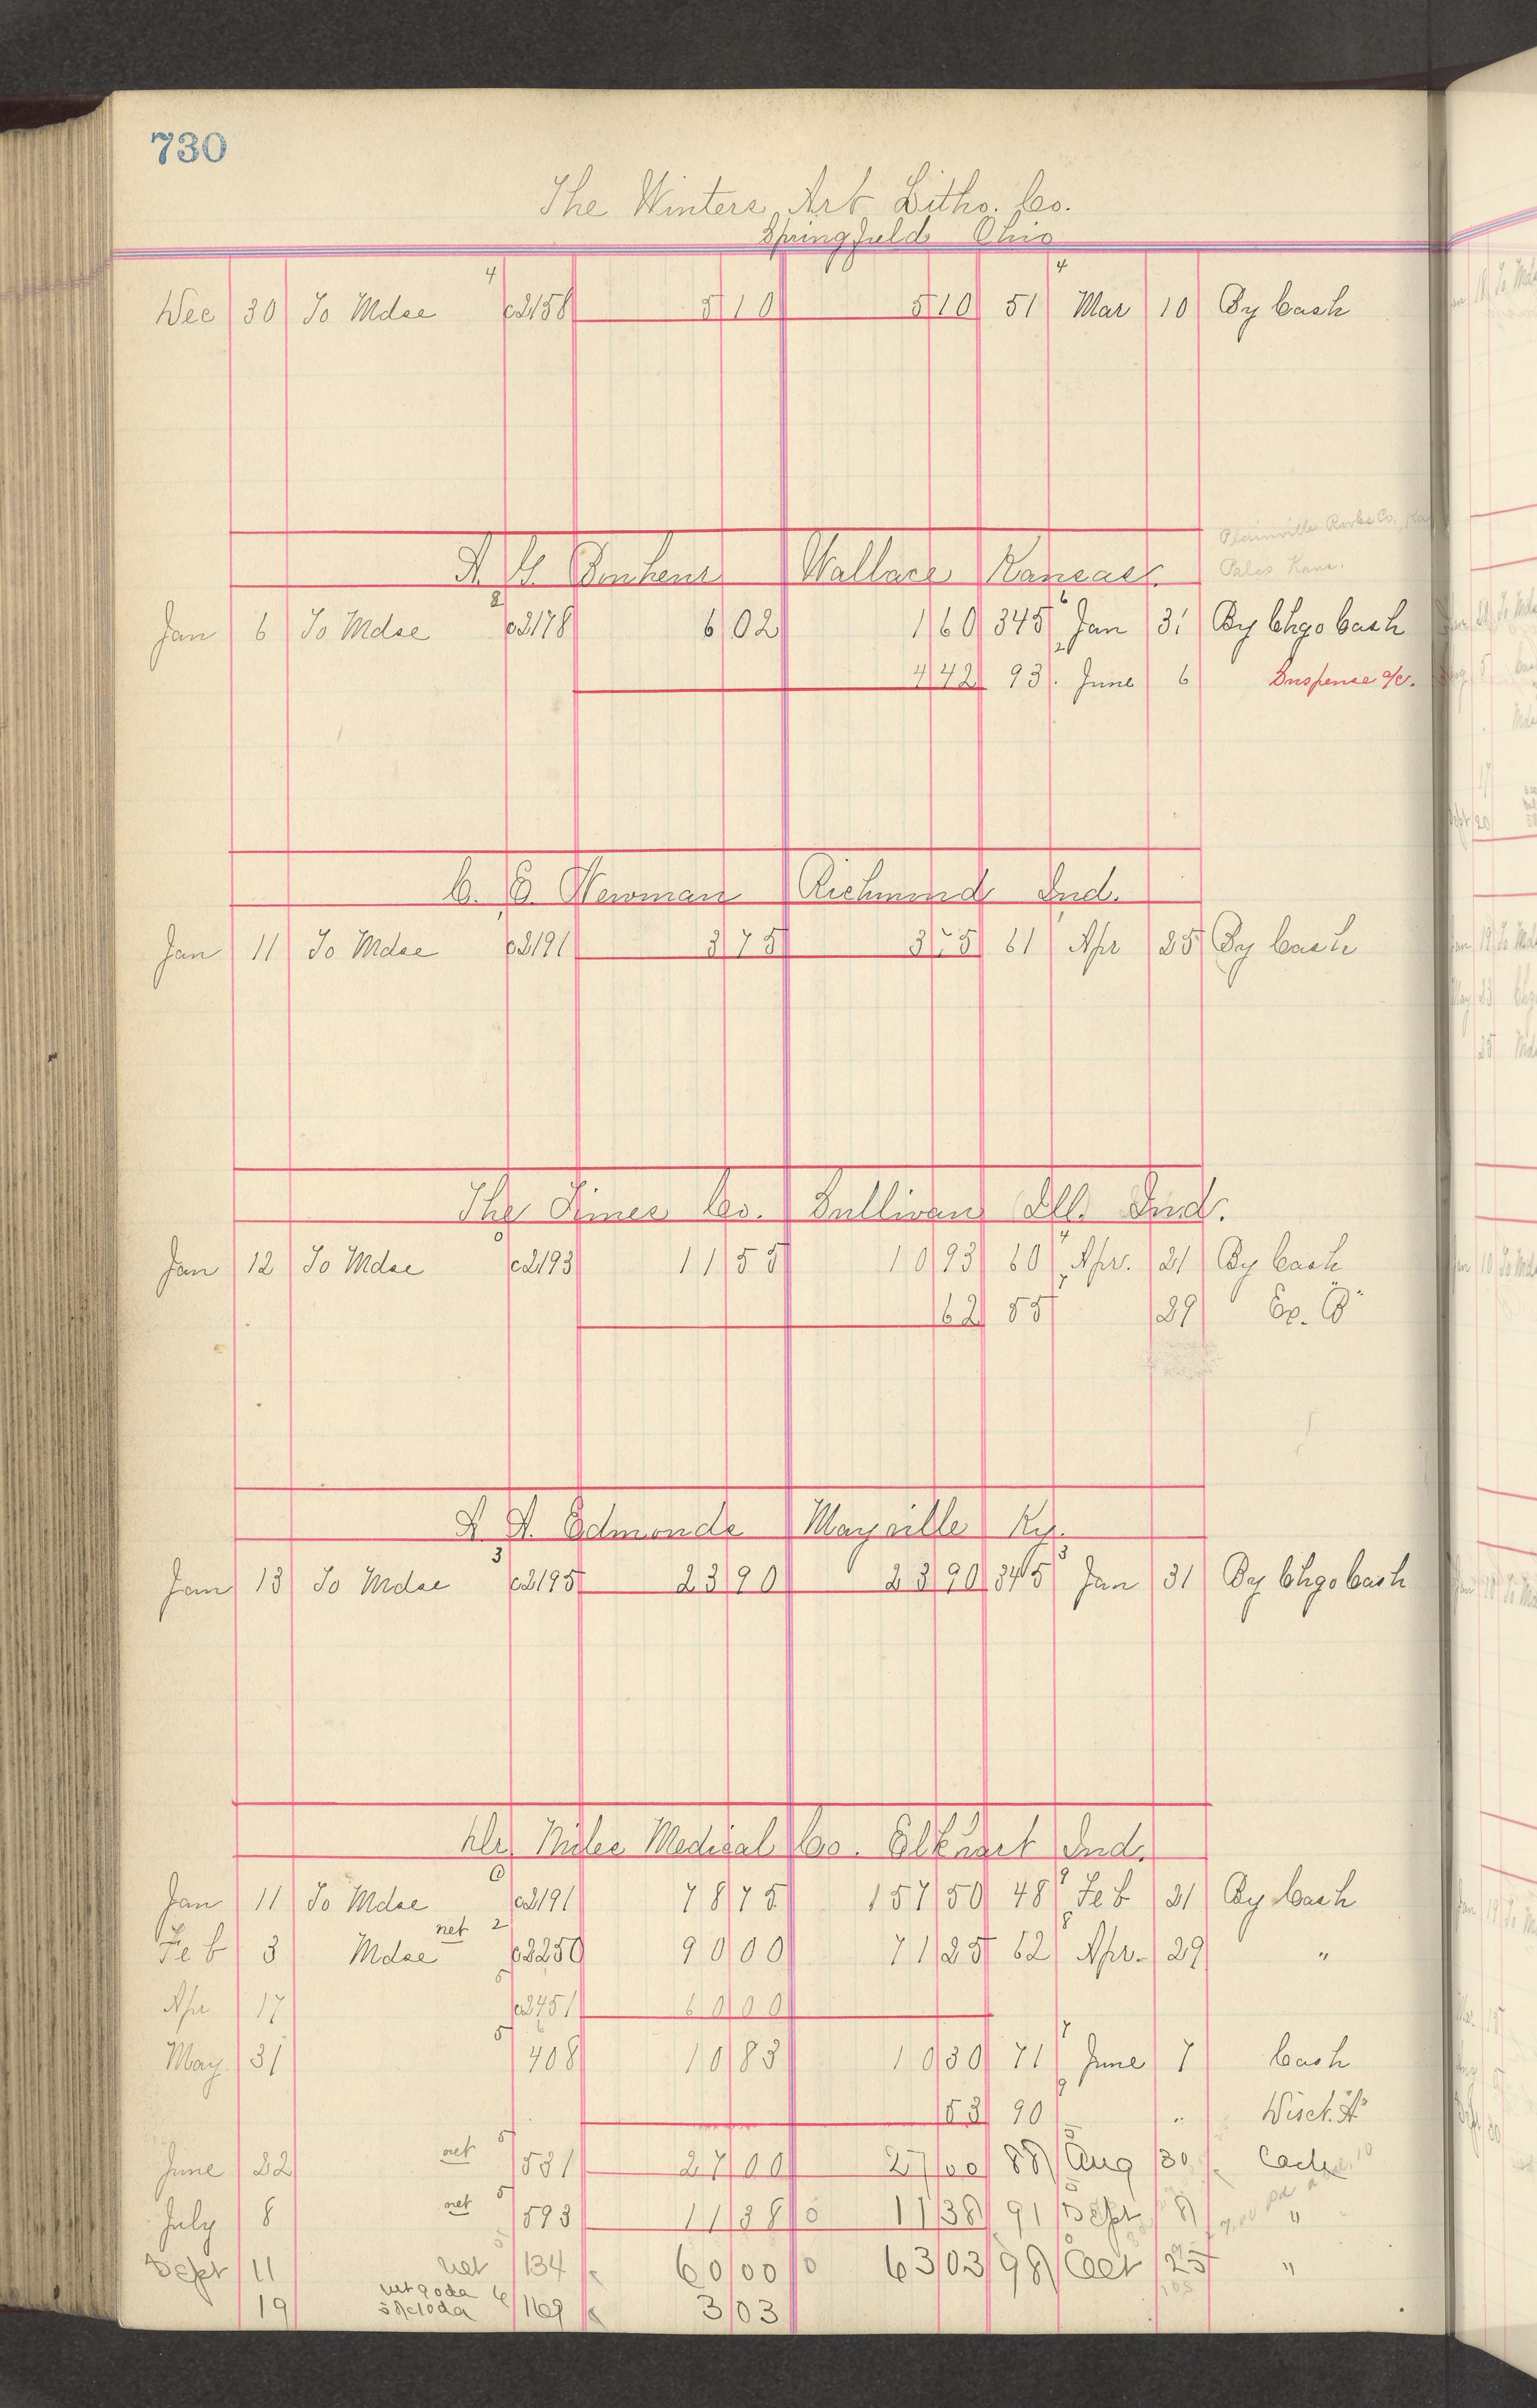 730
The Winters Art Litho. Co.
Springfield Ohio
4 4
Dec 30 To Mdse c2158 5 10 5 10 51 Mar 10 By Cash
Plainville Rooks Co., Kan
Palco Kans.
Wallace Kansas.
2 6
Jan 6 To Mdse c2178 6 02 1 60 345 Jan 31 By Chgo Cash
2
4 42 93 June 6 Suspense a/c.
C. E. Newman Richmond Ind.
Jan 11 To Mdse c2191 3 75 3 75 61 Apr 25 By Cash
The Times Co. Sullivan Ill. Ind.
Jan 12 To Mdse c2193 11 55 10 93 60 Apr. 21 By Cash
7
62 55 29 Ex. B
A. A. Edmonds Maysville Ky.
3 3
Jan 13 To Mdse c2195 23 90 23 90 345 Jan 31 By Chgo Cash
Dr. Miles Medical Co. Elkhart Ind.
6 9
Jan 11 To Mdse c2191 78 75 157 50 48 Feb 21 By Cash
net 2 8
Feb 3 Mdse c2250 90 00 71 25 62 Apr. 29 "
5
Apr 17 c2451 60 00
5 7
May 31 408 10 83 10 30 71 June 7 Cash
9
53 90 " Disct. A
net 5
June 22 531 27 00 27 00 88 Aug 30 Cash
net 5
July 8 593 11 38 11 38 91 Sept 8 "
Sept 11 net 134 60 00 63 03 98 Oct 25 "
net 90da 6
19 5% 10da 1169 3 03